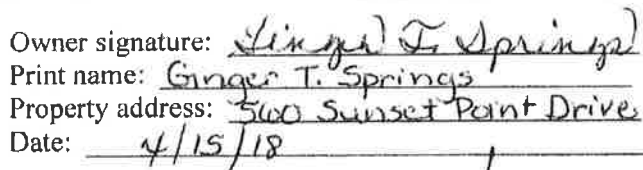 Owner signature: Ginger T. Springs
Print name: Ginger T. Springs
Property address: 560 Sunset Point Drive
Date: 4/15/18